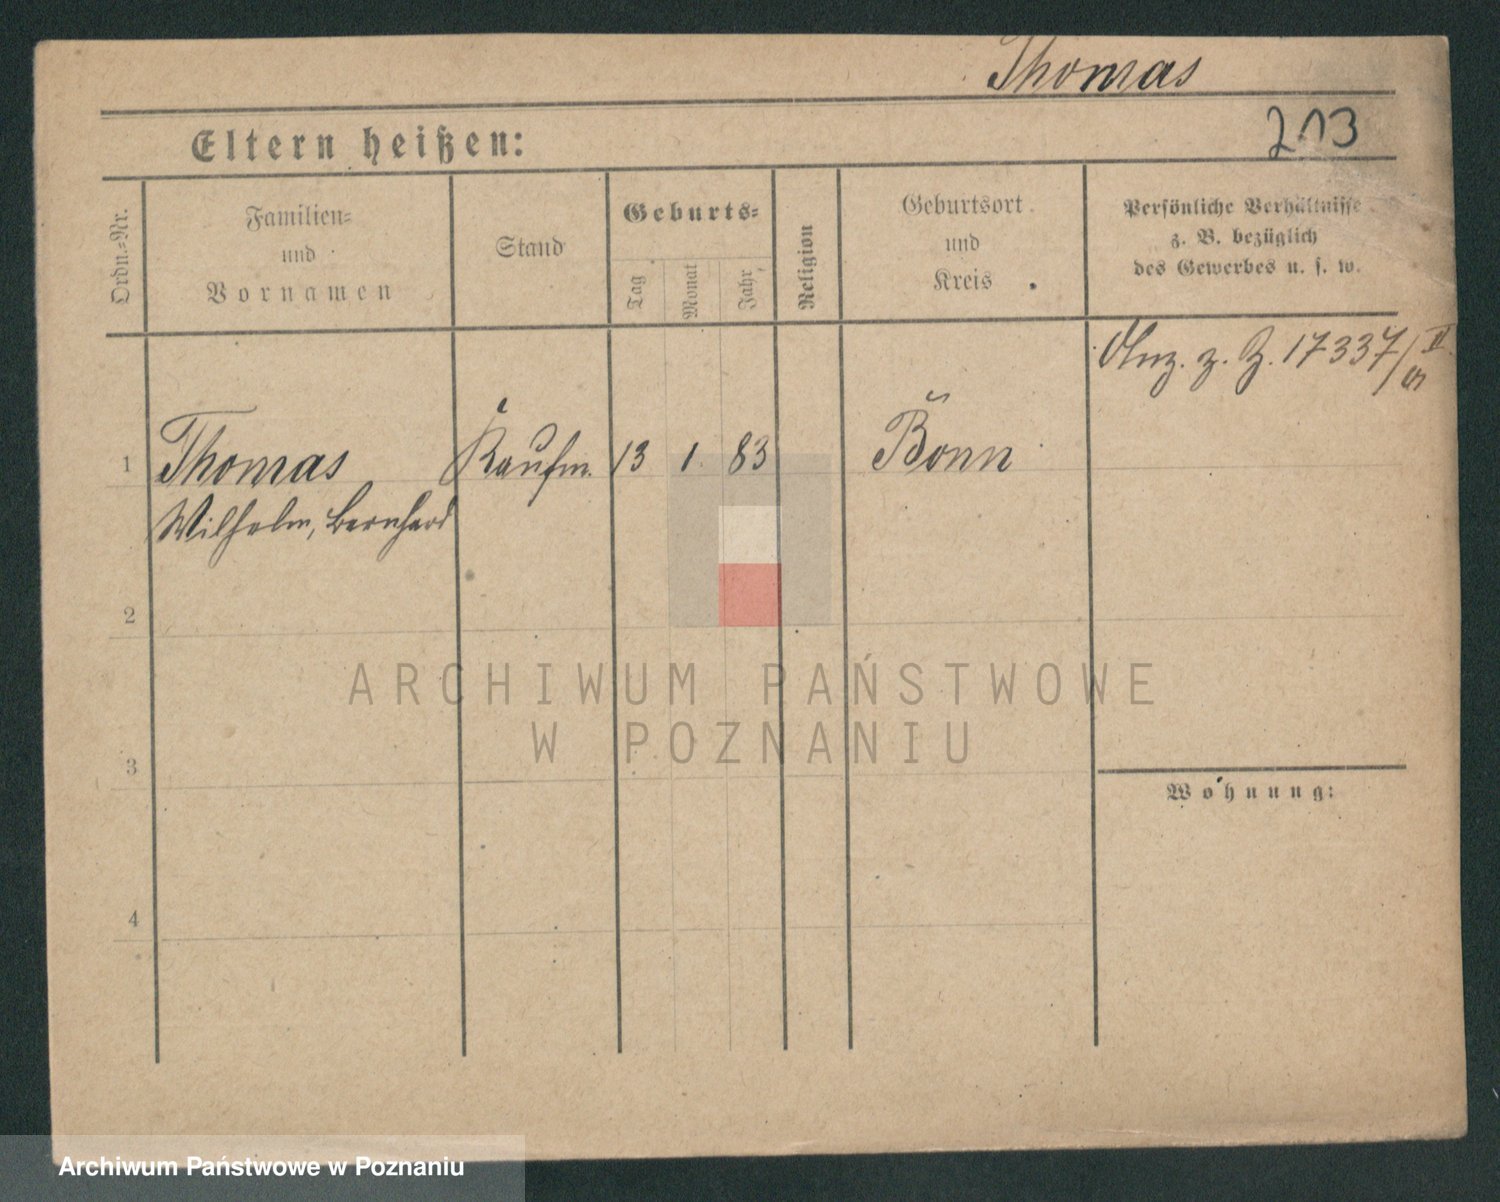 Thomas
213
Eltern heißen:
Ordn.-Nr.
Familien-
und
Vornamen
Stand
Geburts-
Tag
Monat
Jahr
Religion
Geburtsort
und
Kreis
Persönliche Verhältnisse
z. B. bezüglich
des Gewerbes u. s. w.
Anz. z. Z. 17337/ II
1
Thomas
Kaufm.
13
1.
83
Bonn
Wilhelm, Bernhard
2
3
4
Wohnung:
ARCHIWUM PAŃSTWOWE
W POZNANIU
Archiwum Państwowe w Poznaniu